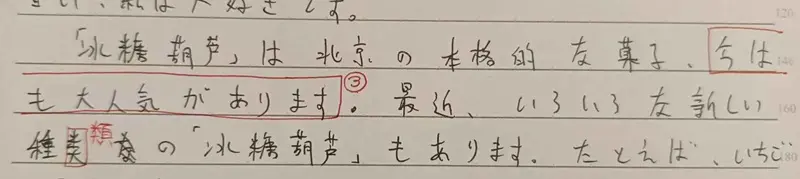 「冰糖葫芦」は北京の本格的な菓子、今は
も大人気があります。③最近、いろいろな新しい
種类類なの「冰糖葫芦」もあります。たとえば、いちご
120
140
160
180